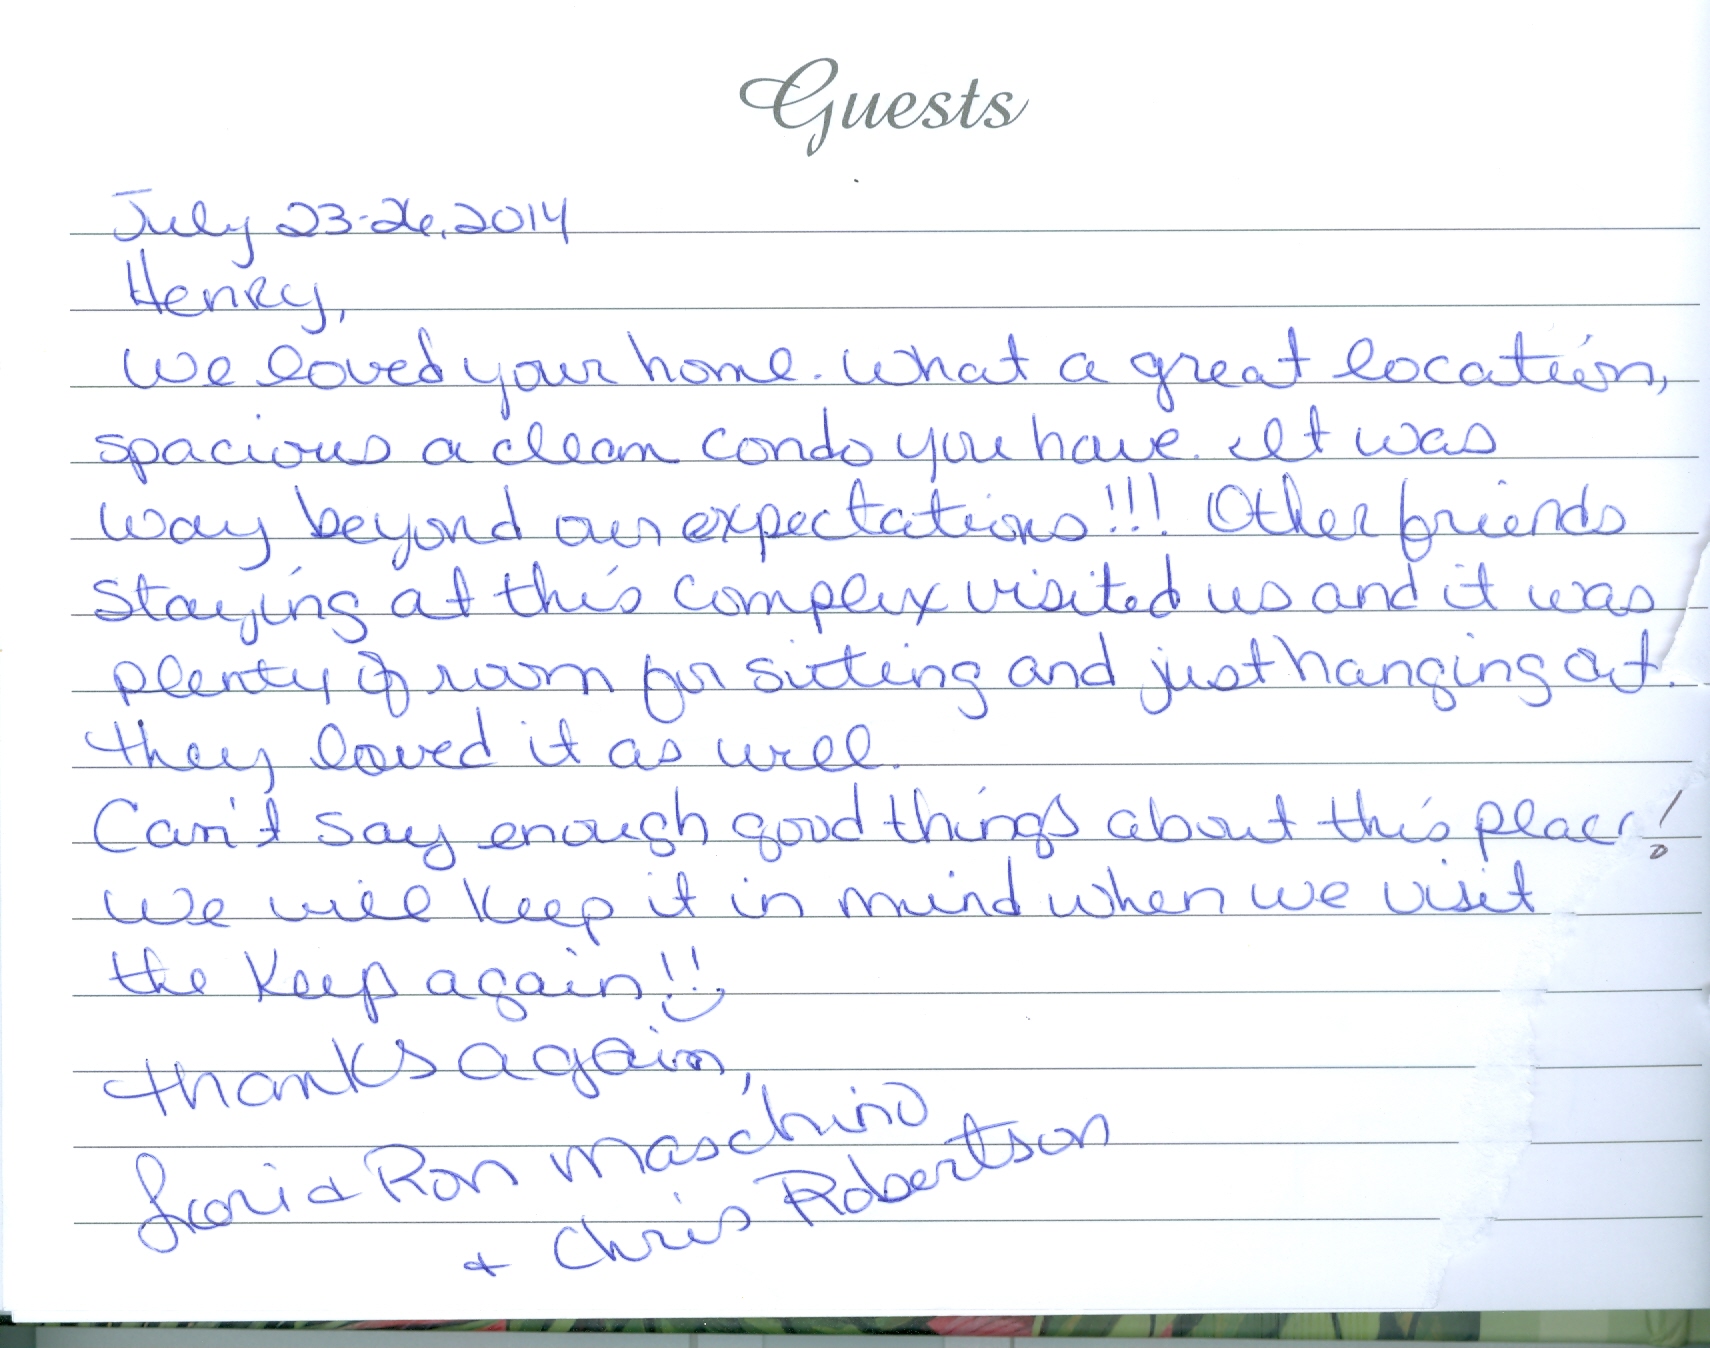 Guests
July 23-26, 2014
Henry,
We loved your home. What a great location,
spacious a clean condo you have. It was
way beyond our expectations!!! Other friends
staying at this complex visited us and it was
plenty of room for sitting and just hanging out.
they loved it as well.
Can't say enough good things about this place!
We will keep it in mind when we visit
the Keep again!!
thanks again,
Lori & Ron Maschino
+ Chris Robertson